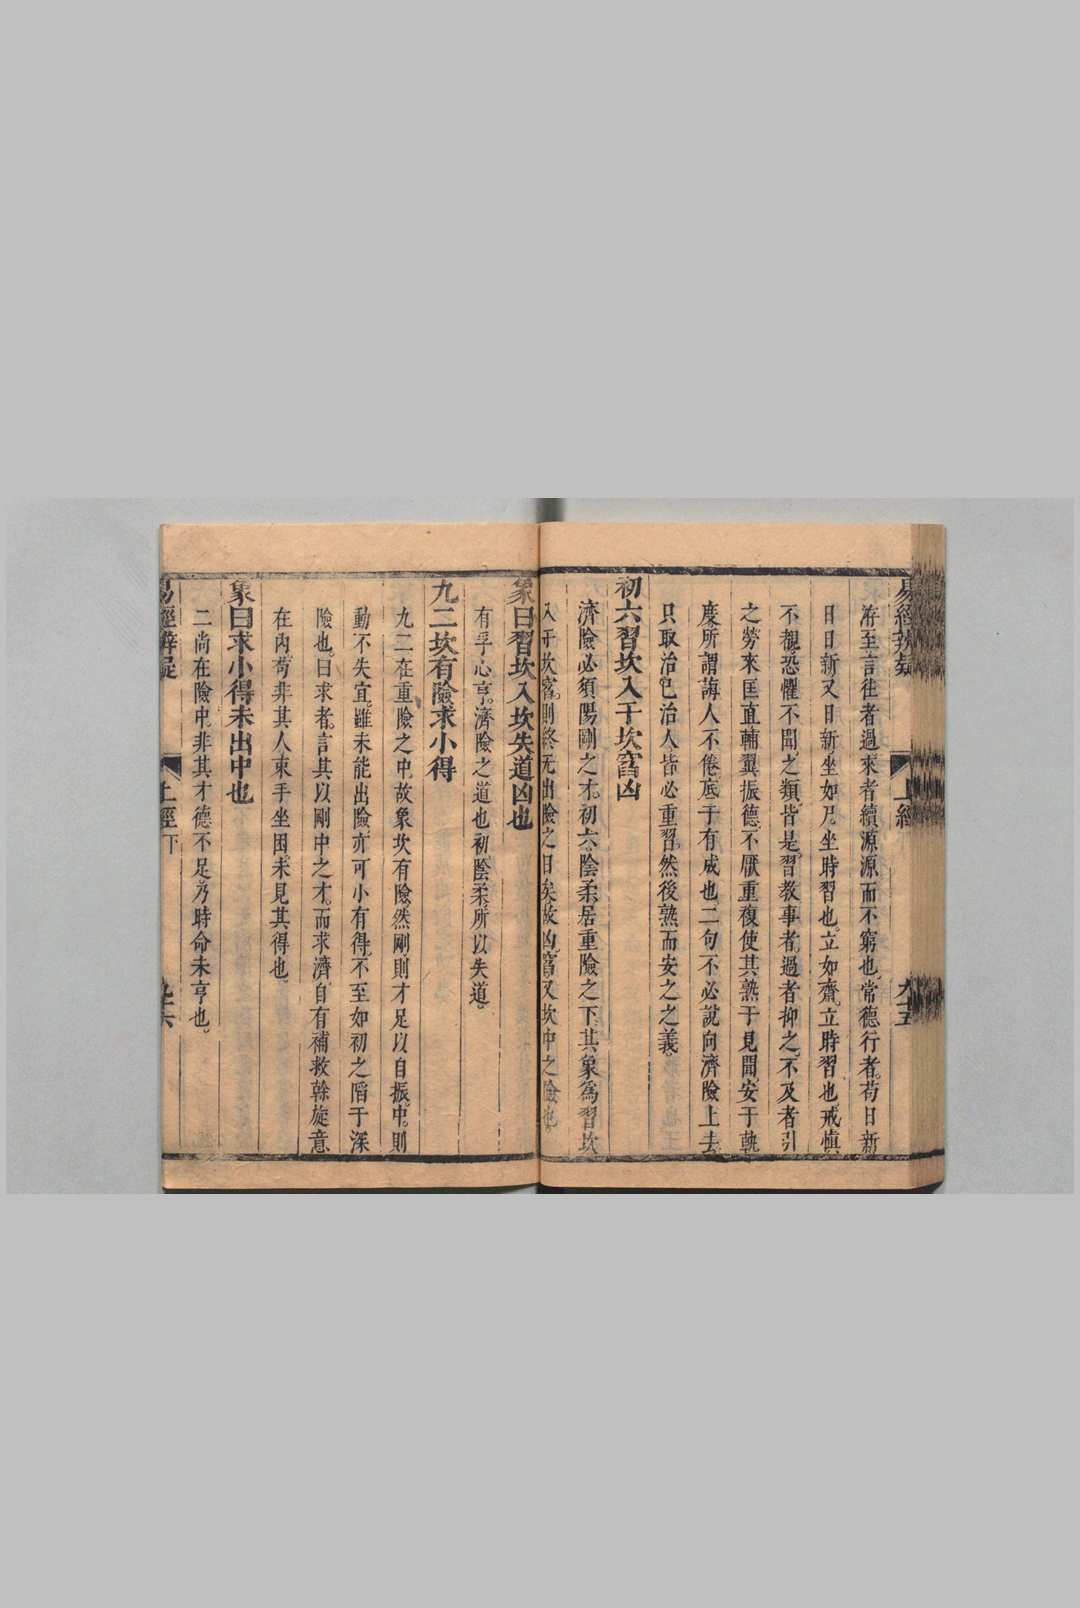 易經辨疑 上經 九十五
洊至言往者過來者續源源而不窮也常德行者苟日新
日日新又日新坐如尸坐時習也立如齋立時習也戒慎
不覩恐懼不聞之類皆是習教事者過者抑之不及者引
之勞來匡直輔翼振德不厭重複使其熟于見聞安于執
度所謂誨人不倦底于有成也二句不必說向濟險上去
只取治已治人皆必重習然後熟而安之之義
初六習坎入于坎窞凶
濟險必須陽剛之才初六陰柔居重險之下其象為習坎
入于坎窞則終无出險之日矣故凶窞又坎中之險也
象曰習坎入坎失道凶也
有孚心亨濟險之道也初陰柔所以失道
九二坎有險求小得
九二在重險之中故象坎有險然剛則才足以自振中則
動不失宜雖未能出險亦可小有得不至如初之陷于深
險也曰求者言其以剛中之才而求濟自有補救斡旋意
在內苟非其人束手坐困未見其得也
象曰求小得未出中也
二尚在險中非其才德不足乃時命未亨也
易經辨疑 上經下 九十六